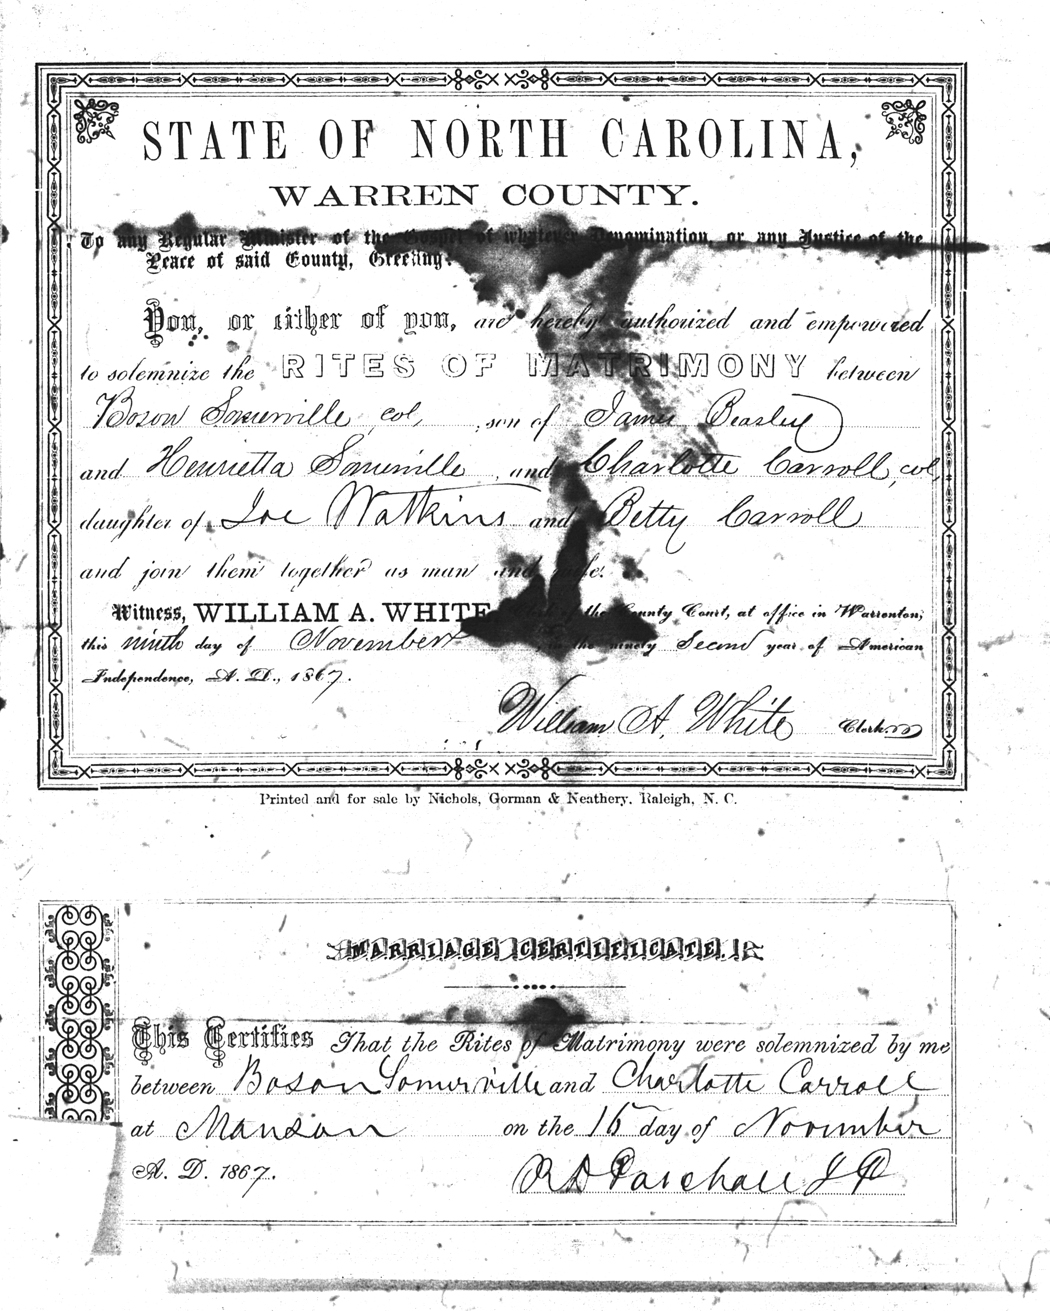 STATE OF NORTH CAROLINA,
WARREN COUNTY.
To any Regular Minister of the Gospel of whatever Denomination, or any Justice of the
Peace of said County, Greeting:
You, or either of you, are hereby authorized and empowered
to solemnize the RITES OF MATRIMONY between
Boson Somerville col, son of James Beasley
and Henrietta Somerville, and Charlotte Carroll, col,
daughter of Joe Watkins and Betty Carroll
and join them together as man and wife.
Witness, WILLIAM A. WHITE, of the County Court, at office in Warrenton,
this ninth day of November in the ninety Second year of American
Independence, A. D., 1867.
William A. White Clerk.
Printed and for sale by Nichols, Gorman & Neathery, Raleigh, N. C.
MARRIAGE CERTIFICATE.
This Certifies That the Rites of Matrimony were solemnized by me
between Boson Somerville and Charlotte Carroll
at Manson on the 16 day of November
A. D. 1867. R D Paschall J P